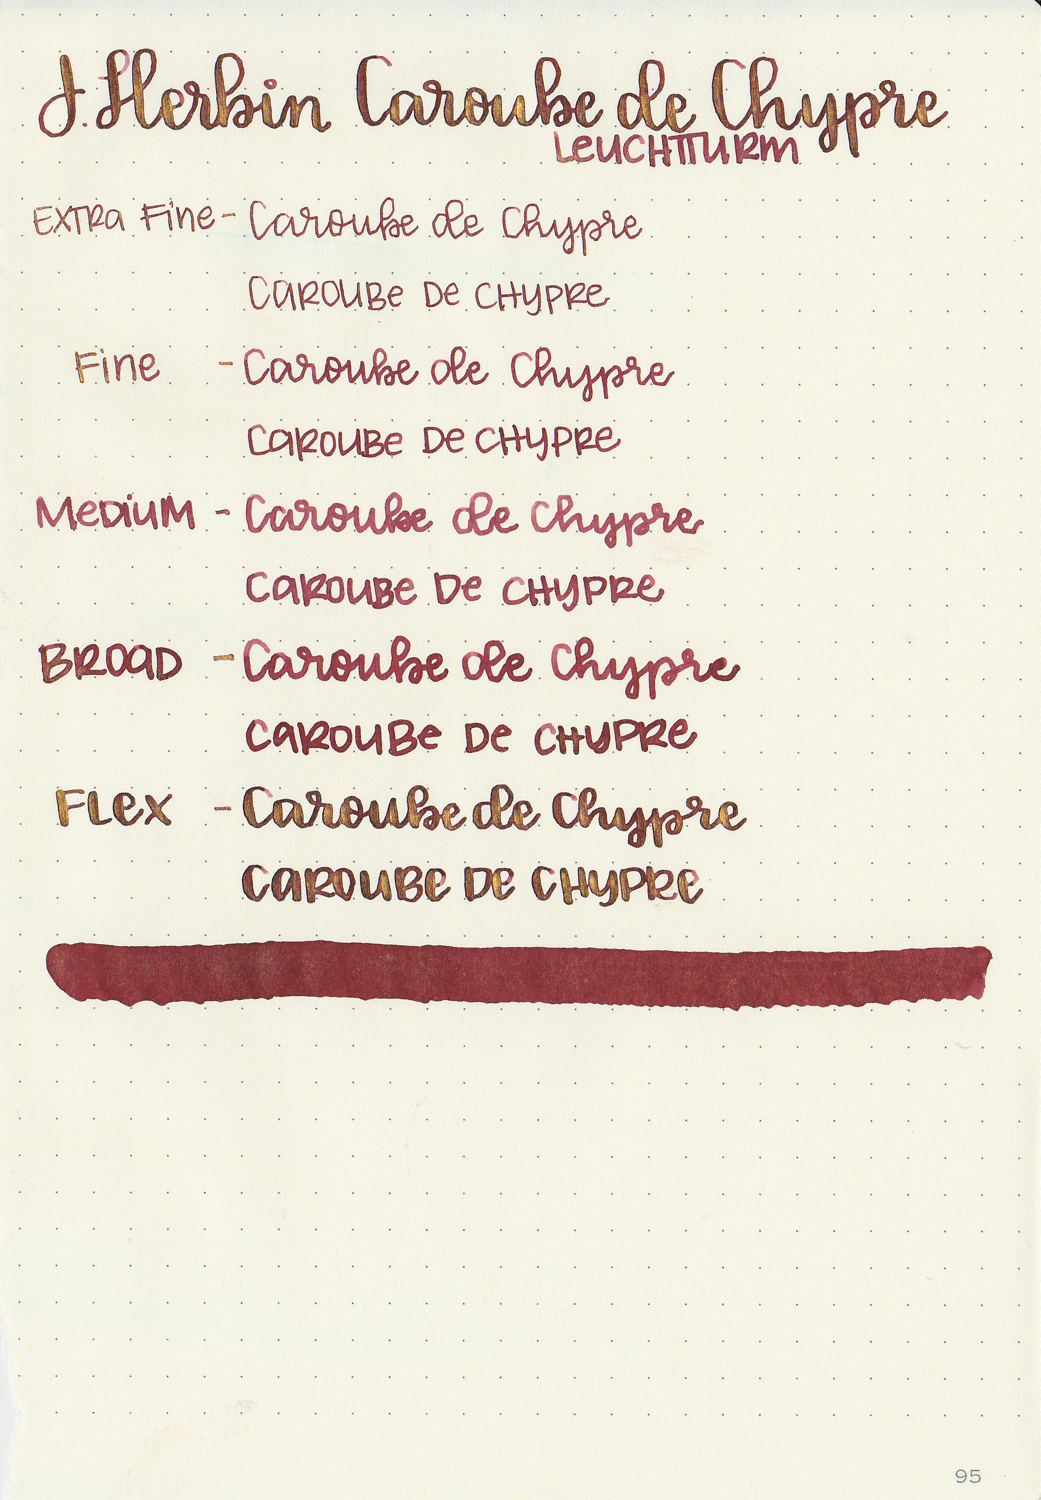 J. Herbin Caroube de Chypre
LEUCHTTURM
EXTRA FINE - Caroube de Chypre
CAROUBE DE CHYPRE
FINE - Caroube de Chypre
CAROUBE DE CHYPRE
MEDIUM - Caroube de Chypre
CAROUBE DE CHYPRE
BROAD - Caroube de Chypre
CAROUBE DE CHYPRE
FLEX - Caroube de Chypre
CAROUBE DE CHYPRE
95